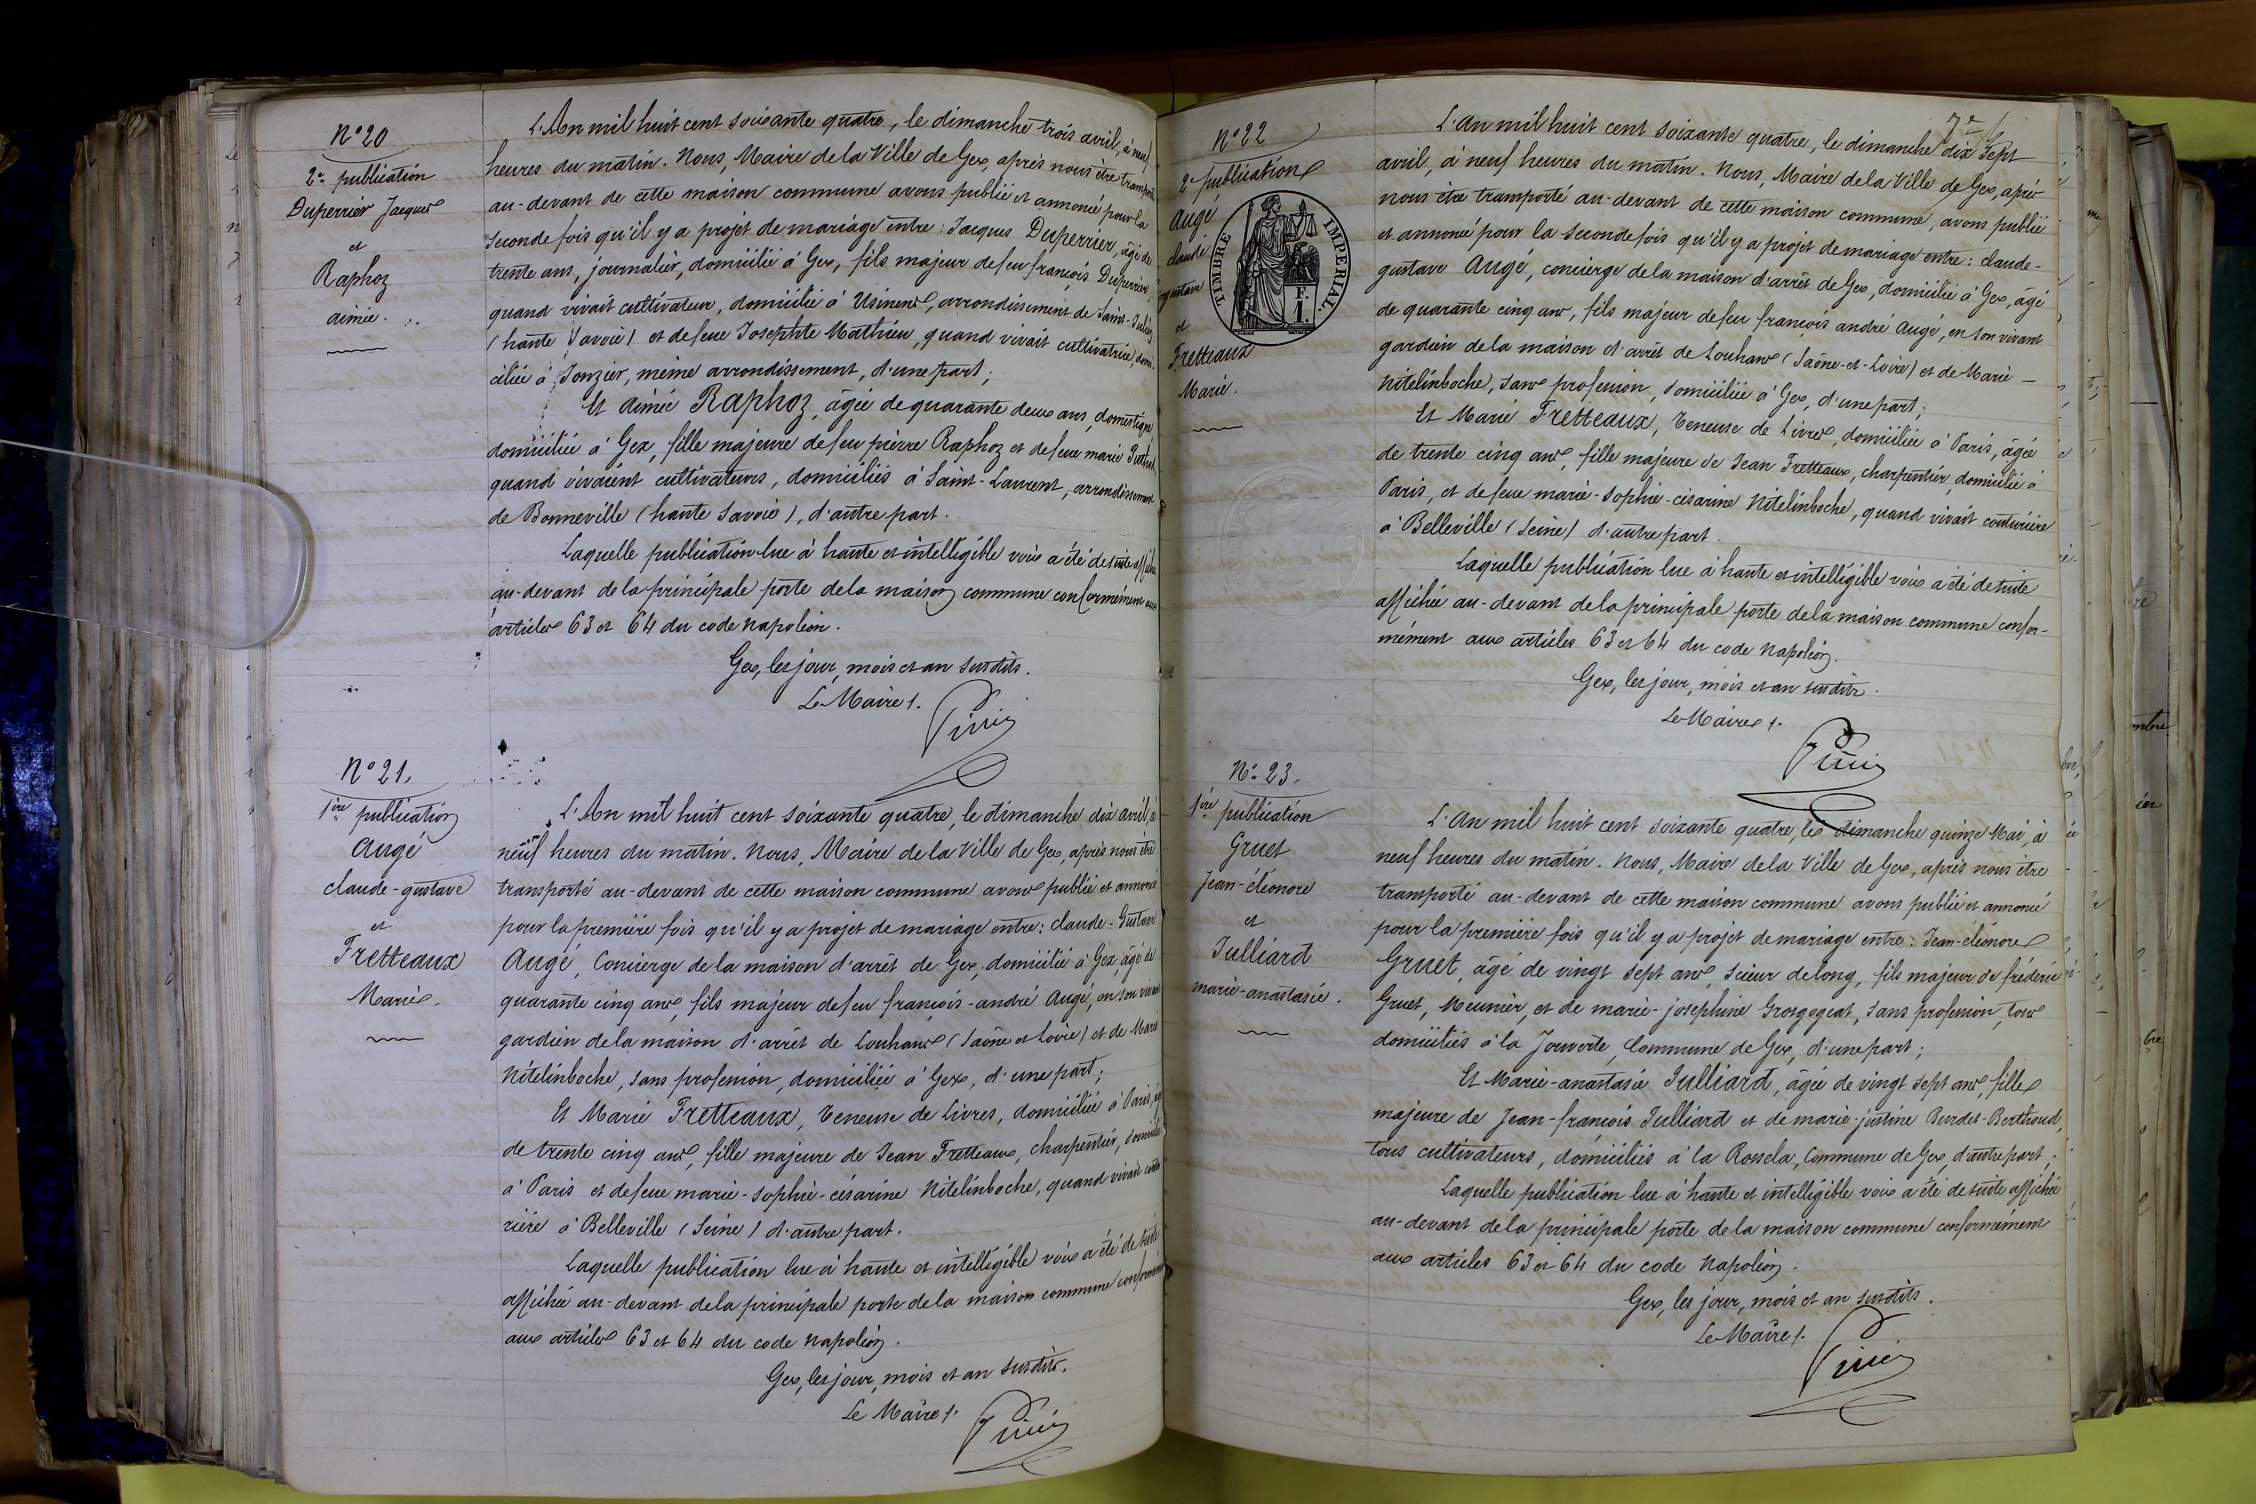 N° 20
2e publication
Duperrier Jacques
et
Raphoz
aimée.
L'An mil huit cent soixante quatre, le dimanche trois avril, à neuf
heures du matin. Nous, Maire de la Ville de Gex, après nous être transporté
au-devant de cette maison commune avons publié et annoncé pour la
seconde fois qu'il y a projet de mariage entre : Jacques Duperrier, âgé de
trente ans, journalier, domicilié à Gex, fils majeur de feu françois Duperrier
quand vivait cultivateur, domicilié à Usinens, arrondissement de Saint-Julien
(haute Savoie) et de feue Josephte Mathieu, quand vivait cultivatrice, domi-
ciliée à Jonzier, même arrondissement, d'une part ;
Et aimée Raphoz, âgée de quarante deux ans, domestique
domiciliée à Gex, fille majeure de feu pierre Raphoz et de feue marie
quand vivaient cultivateurs, domiciliés à Saint-Laurent, arrondissement
de Bonneville (haute Savoie), d'autre part.
Laquelle publication lue à haute et intelligible voix a été de suite affichée
au-devant de la principale porte de la maison commune conformément aux
articles 63 et 64 du code napoléon.
Gex, les jour, mois et an susdits.
Le Maire /.
N° 21.
1ère publication
Augé
claude-gustave
et
Fretteaux
Marie.
L'An mil huit cent soixante quatre, le dimanche dix avril, à
neuf heures du matin. Nous, Maire de la Ville de Gex, après nous être
transporté au-devant de cette maison commune avons publié et annoncé
pour la première fois qu'il y a projet de mariage entre : claude-Gustave
Augé, Concierge de la maison d'arrêt de Gex, domicilié à Gex, âgé de
quarante cinq ans, fils majeur de feu françois-andré Augé, en son vivant
gardien de la maison d'arrêt de Louhans (Saône et Loire) et de Marie
Nitelinboche, sans profession, domiciliée à Gex, d'une part ;
Et Marie Fretteaux, teneuse de livres, domiciliée à Paris, âgée
de trente cinq ans, fille majeure de Jean Fretteaux, charpentier, domicilié
à Paris et de feue marie-sophie-césarine Nitelinboche, quand vivait coutu
rière à Belleville (Seine) d'autre part.
Laquelle publication lue à haute et intelligible voix a été de suite
affichée au-devant de la principale porte de la maison commune conformément
aux articles 63 et 64 du code napoléon.
Gex, les jour, mois et an susdits.
Le Maire /.
7e
N° 22
2e publication
Augé
claude
gustave
et
Fretteaux
Marie.
TIMBRE IMPERIAL.
L'an mil huit cent soixante quatre, le dimanche dix sept
avril, à neuf heures du matin. Nous, Maire de la Ville de Gex, après
nous être transporté au-devant de cette maison commune, avons publié
et annoncé pour la seconde fois qu'il y a projet de mariage entre : claude-
gustave Augé, concierge de la maison d'arrêt de Gex, domicilié à Gex, âgé
de quarante cinq ans, fils majeur de feu françois andré Augé, en son vivant
gardien de la maison d'arrêt de Louhans (Saône-et-Loire) et de Marie —
Nitelinboche, sans profession, domiciliée à Gex, d'une part ;
Et Marie Fretteaux, teneuse de livres, domiciliée à Paris, âgée
de trente cinq ans, fille majeure de Jean Fretteaux, charpentier, domicilié à
Paris, et de feue marie-sophie-césarine Nitelinboche, quand vivait couturière
à Belleville (Seine) d'autre part.
Laquelle publication lue à haute et intelligible voix a été de suite
affichée au-devant de la principale porte de la maison commune confor-
mément aux articles 63 et 64 du code napoléon.
Gex, les jour, mois et an susdits.
Le Maire /.
N° 23.
1ère publication
Gruet
Jean-éléonore
et
Julliard
marie-anastasie.
L'an mil huit cent soixante quatre, le dimanche quinze Mai, à
neuf heures du matin. Nous, Maire de la Ville de Gex, après nous être
transporté au-devant de cette maison commune avons publié et annoncé
pour la première fois qu'il y a projet de mariage entre : Jean-éléonore
Gruet, âgé de vingt sept ans, scieur de long, fils majeur de fréderic
Gruet, Meunier, et de marie-josephine Grosgogeat, sans profession, tous
domiciliés à la Jouverte, Commune de Gex, d'une part ;
Et Marie-anastasie Julliard, âgée de vingt sept ans, fille
majeure de Jean-françois Julliard et de marie-justine Burdet-Berthoud,
tous cultivateurs, domiciliés à la Rossela, Commune de Gex, d'autre part ;
Laquelle publication lue à haute et intelligible voix a été de suite affichée
au-devant de la principale porte de la maison commune conformément
aux articles 63 et 64 du code Napoléon.
Gex, les jour, mois et an susdits.
Le Maire /.